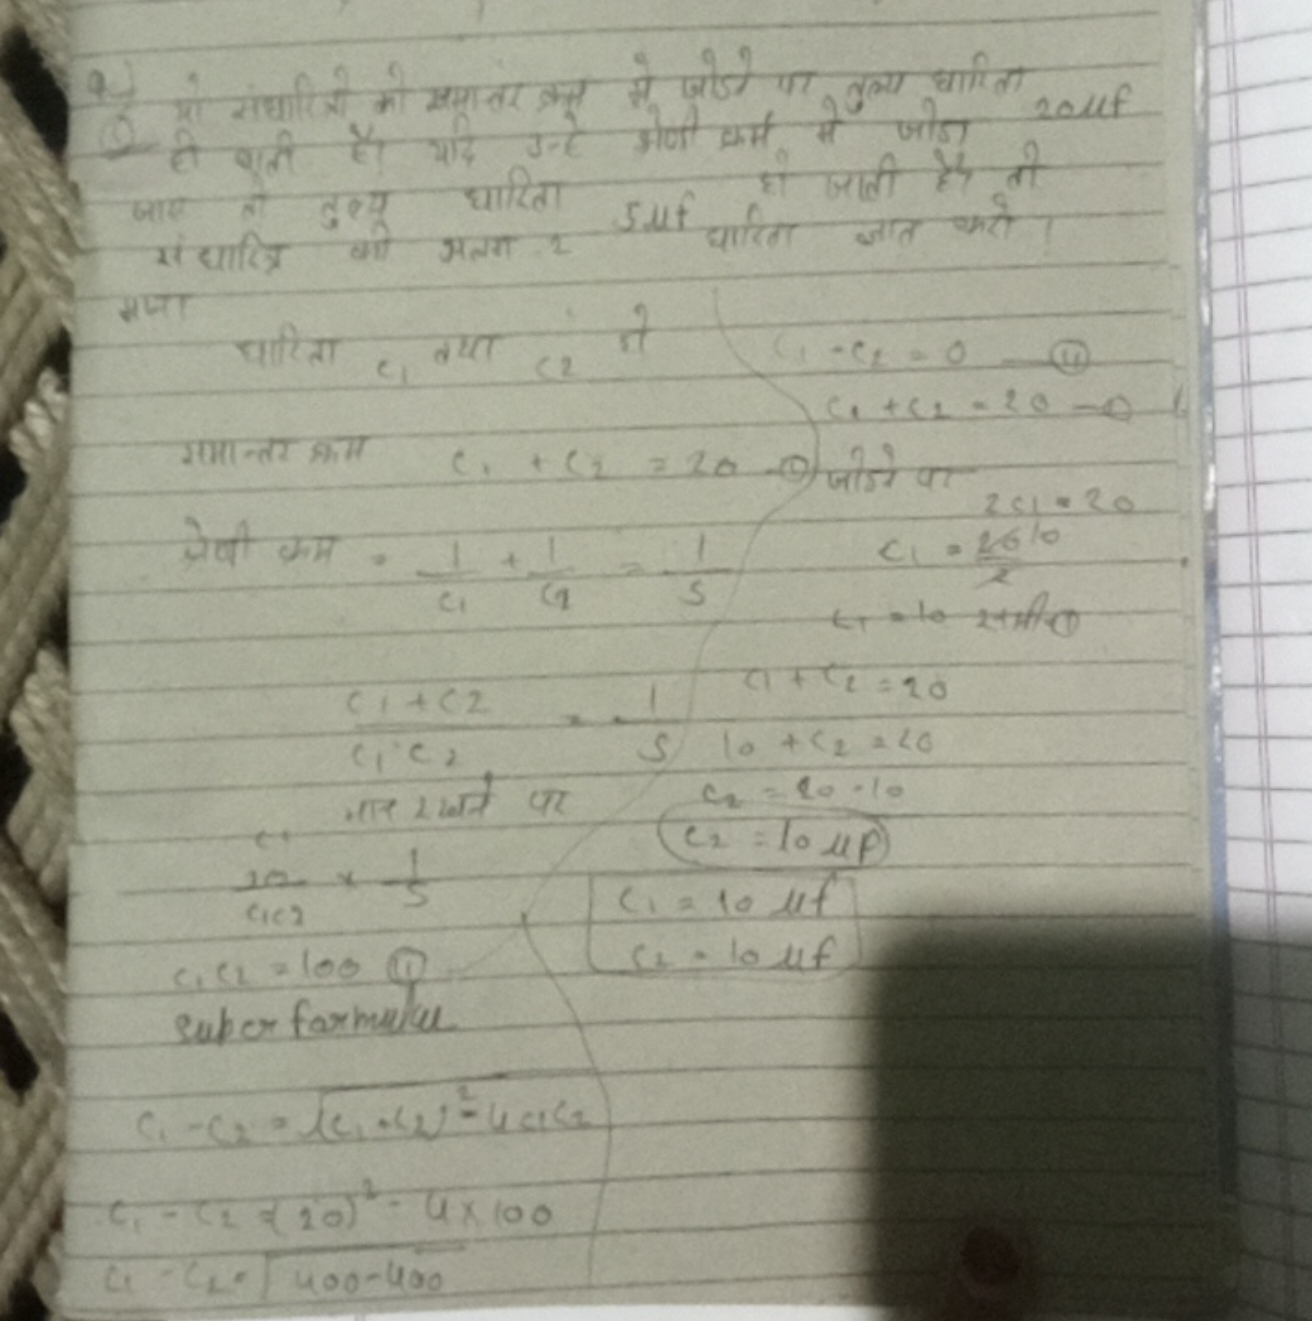 दो संधारित्रो को समान्तर क्रम में जोडने पर तुल्य धारिता 20uf
हो जाती है। यदि उन्हे श्रेणी क्रम में जोडा
जाए तो तुल्य धारिता 5uf हो जाती है। तो
संधारित्र की अलग-2 धारिता ज्ञात करो।
माना
धारिता C1 तथा C2 है
समान्तर क्रम C1 + C2 = 20 -①
श्रेणी क्रम = 1/C1 + 1/C2 = 1/5
C1+C2 / C1C2 = 1/5
मान रखने पर
20/C1C2 × 1/5
C1C2 = 100 ②
super formula
C1-C2 = √(C1+C2)²-4C1C2
C1-C2 = (20)² - 4×100
C1-C2 = √400-400
C1-C2 = 0 -⑪
C1+C2 = 20 -①
जोडने पर
2C1 = 20
C1 = 20/2 10
C1 = 10 समी①
C1+C2 = 20
10+C2 = 20
C2 = 20-10
C2 = 10 uf
C1 = 10 uf
C2 = 10 uf